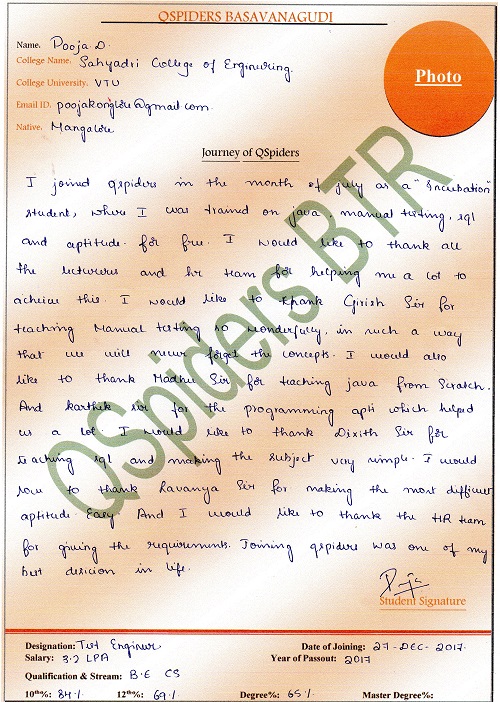 QSPIDERS BASAVANAGUDI
Name. Pooja.D.
College Name. Sahyadri College of Enginuring.
College University. VTU
Email ID. poojakonglou@gmail.com.
Native. Mangalou
Photo
Journey of QSpiders
I joined qspiders in the month of july as a "Incubation"
student, where I was trained on java, manual testing, sql
and aptitude for free. I would like to thank all
the lecturers and hr team for helping me a lot to
acheive this. I would like to thank Girish Sir for
teaching Manual testing so wonderfully, in such a way
that we will never forget the concepts. I would also
like to thank Madhu Sir for teaching java from Scratch.
And karthik sir for the programming apti which helped
us a lot. I would like to thank Dixith Sir for
teaching sql and making the subject very simple. I would
love to thank Lavanya Sir for making the most difficult
aptitude Easy And I would like to thank the HR team
for giving the requirements. Joining qspiders was one of my
best desicion in life.
Student Signature
QSpiders BTR
Designation: Test Engineer Date of Joining: 27-DEC-2017.
Salary: 3.2 LPA Year of Passout: 2017
Qualification & Stream: B.E CS
10th%: 84% 12th%: 69% Degree%: 65% Master Degree%: